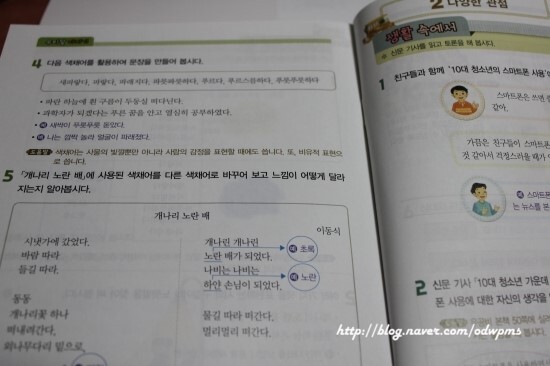 4 다음 색채어를 활용하여 문장을 만들어 봅시다.
새파랗다, 파랗다, 파래지다, 파릇파릇하다, 푸르다, 푸르스름하다, 푸릇푸릇하다
• 파란 하늘에 흰 구름이 두둥실 떠다닌다.
• 과학자가 되겠다는 푸른 꿈을 안고 열심히 공부하였다.
• 예 새싹이 푸릇푸릇 돋았다.
• 예 나는 깜짝 놀라 얼굴이 파래졌다.
도움말 색채어는 사물의 빛깔뿐만 아니라 사람의 감정을 표현할 때에도 씁니다. 또, 비유적 표현으
로 씁니다.
5 「개나리 노란 배」에 사용된 색채어를 다른 색채어로 바꾸어 보고 느낌이 어떻게 달라
지는지 알아봅시다.
개나리 노란 배
이동식
시냇가에 갔었다.
바람 따라
들길 따라.
동동
개나리꽃 하나
떠내려간다.
외나무다리 밑으로
개나리 개나린
노란 배가 되었다.
예 초록
나비는 나비는
하얀 손님이 되었다.
예 노란
물길 따라 떠간다.
멀리멀리 떠간다.
2 다양한 관점
생활 속에서
신문 기사를 읽고 토론을 해 봅시다.
1 친구들과 함께 '10대 청소년의 스마트폰 사용'에
스마트폰은 쓰면
같아.
가끔은 친구들이 스마트폰
것 같아서 걱정스러울 때가
는 뉴스를 본
2 신문 기사 「10대 청소년 가운데
폰 사용에 대한 자신의 생각을
http://blog.naver.com/odwpms